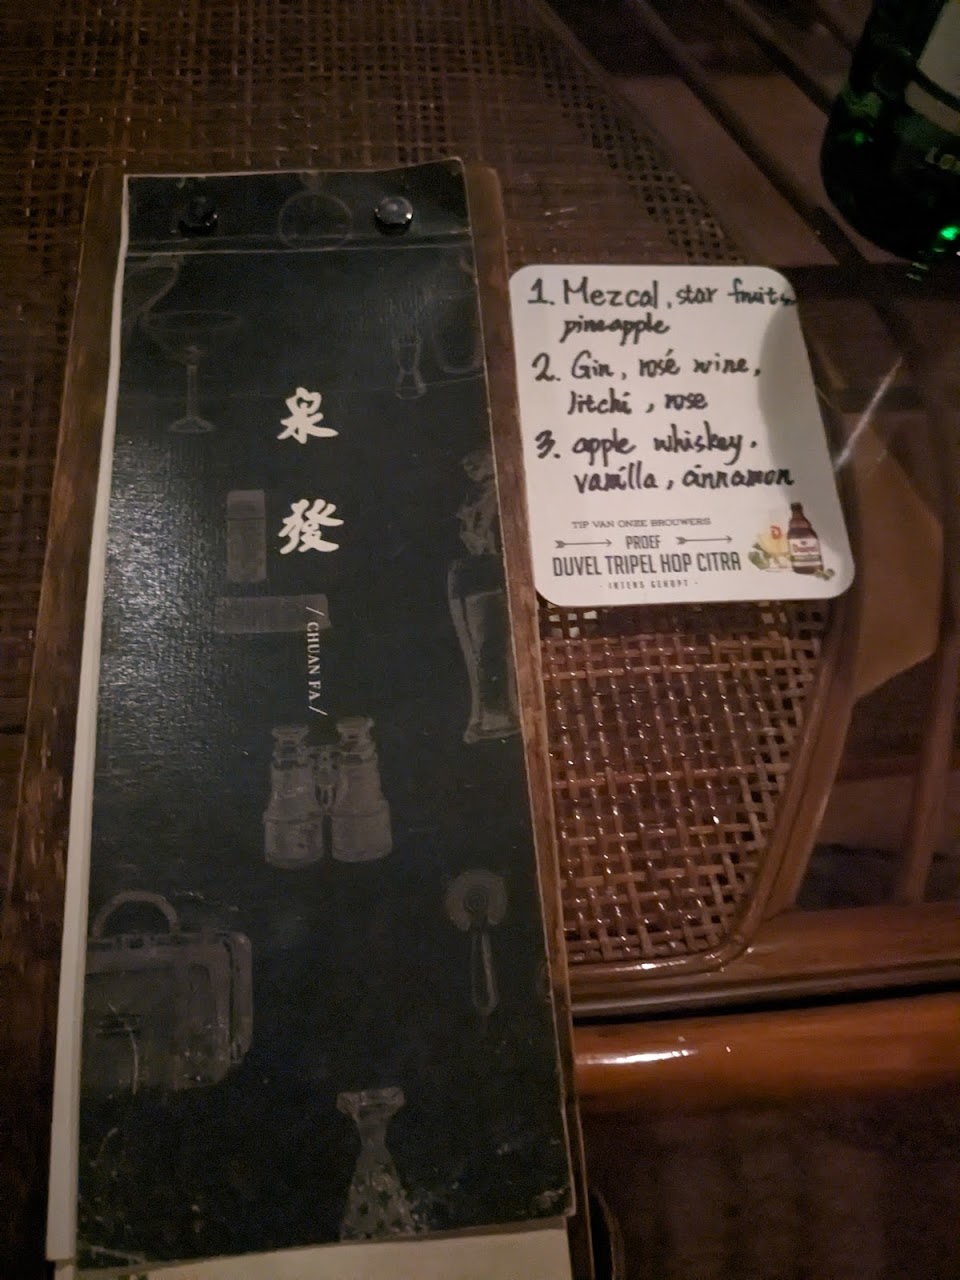 泉
發
/ CHUAN FA /
1. Mezcal, star fruit
pineapple
2. Gin, rosé wine,
litchi, rose
3. apple whiskey.
vanilla, cinnamon
TIP VAN ONZE BROUWERS
PROEF
DUVEL TRIPEL HOP CITRA
- INTENS GEHOPT -